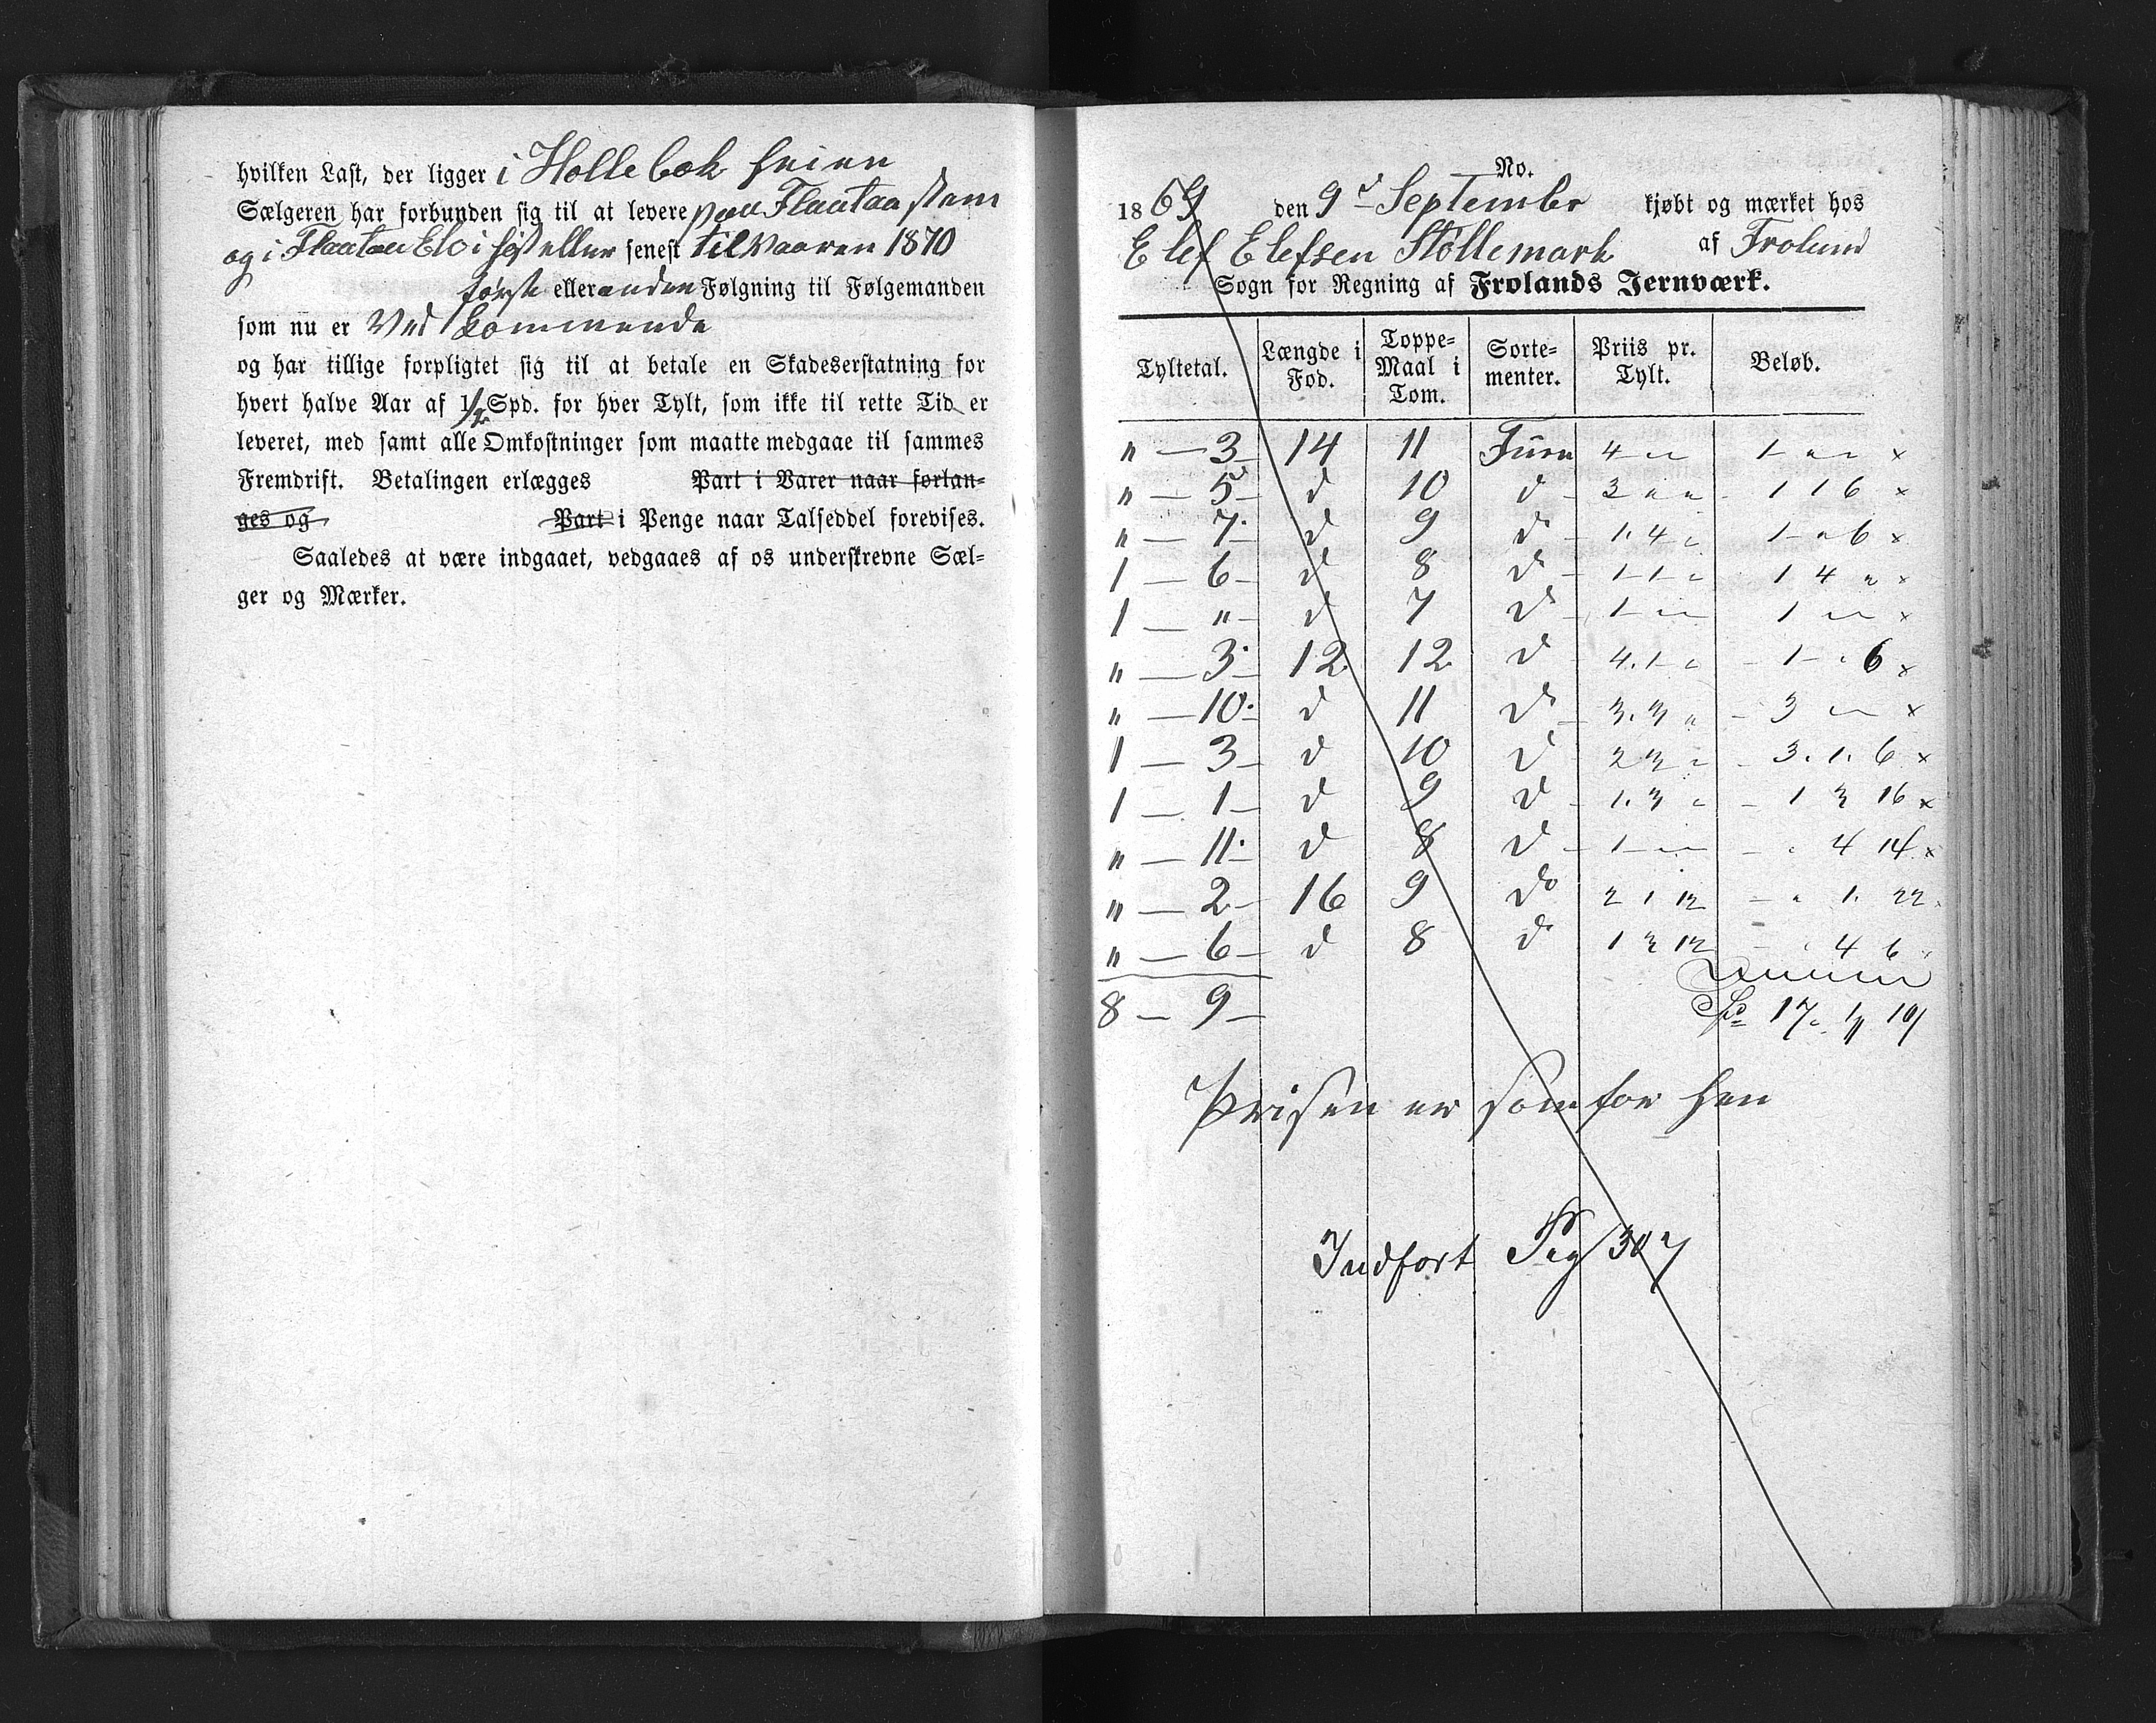 hvilken Last, der ligger i Hollebæk heien
Sælgeren har forbunden sig til at levere paa Flaataa stem
og i Flaataa Elv i høst eller senest til Vaaren 1870
første eller anden Følgning til Følgemanden
som nu er Ved kommende
og har tillige forpligtet sig til at betale en Skadeserstatning for
hvert halve Aar af 1/2 Spd. for hver Tylt, som ikke til rette Tid er
leveret, med samt alle Omkostninger som maatte medgaae til sammes
Fremdrift. Betalingen erlægges Part i Varer naar forlan-
ges og Part i Penge naar Talseddel forevises.
Saaledes at være indgaaet, vedgaaes af os underskrevne Sæl-
ger og Mærker.
No.
1869 den 9d September kjøbt og mærket hos
Elef Elefsen Støllemark af Froland
Sogn for Regning af Frolands Jernværk.
Tyltetal. Længde i Fod. Toppe-Maal i Tom. Sorte-menter. Priis pr. Tylt. Beløb.
" — 3 14 11 Furu 4 - " 1 - " - " x
" — 5 d 10 d 3 " " 1 1 6 x
" — 7 d 9 do 1. 4 " 1 - " 6 x
1 — 6 d 8 do 1 - 1 " 1 4 " x
1 — " d 7 do 1 - " 1 " x
" — 3 12 12 d 4. 1 - " 1 - " 6 x
" — 10 d 11 do 3. 3 " 3 " x
1 — 3 d 10 d 2 3 " 3. 1. 6 x
1 — 1 d 9 d 1. 3 " 1 3 16 x
" — 11 d 8 d 1 - " " 4 14 x
" — 2 16 9 do 2 1 12 " 1. 22
" — 6 d 8 do 1 3 12 " 4 6
Summa
8 — 9 Spd 17
Prisen er som for hen
Indført Pag 307